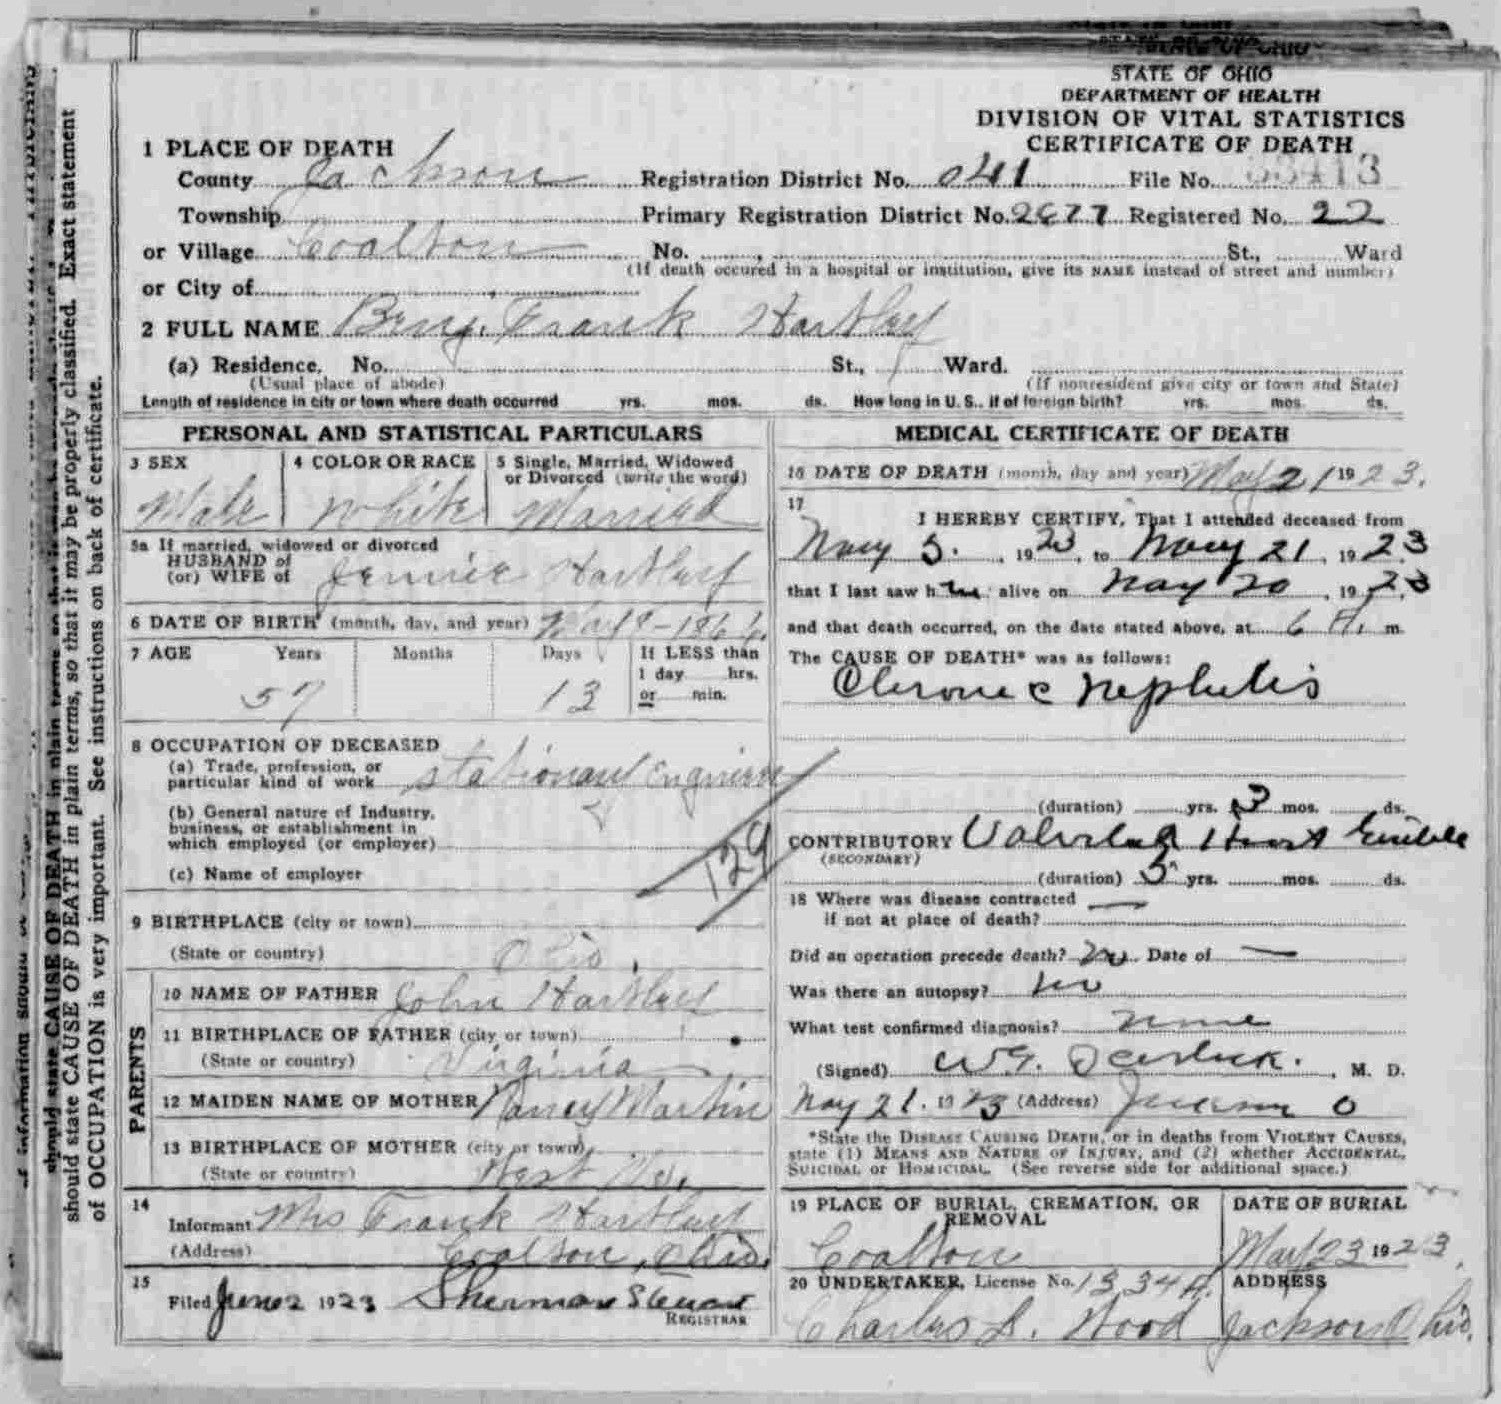 STATE OF OHIO
DEPARTMENT OF HEALTH
DIVISION OF VITAL STATISTICS
CERTIFICATE OF DEATH
1 PLACE OF DEATH
County Jackson Registration District No. 041 File No.
Township Primary Registration District No. 2677 Registered No. 22
or Village Coalton No. St., Ward
(If death occured in a hospital or institution, give its NAME instead of street and number)
or City of
2 FULL NAME Benj. Frank Hartley
(a) Residence, No. St., Ward.
(Usual place of abode) (If nonresident give city or town and State)
Length of residence in city or town where death occurred yrs. mos. ds. How long in U. S., if of foreign birth? yrs. mos. ds.
PERSONAL AND STATISTICAL PARTICULARS
3 SEX 4 COLOR OR RACE 5 Single, Married, Widowed
or Divorced (write the word)
Male White Married
5a If married, widowed or divorced
HUSBAND of
(or) WIFE of Jennie Hartley
6 DATE OF BIRTH (month, day, and year) May 8-1866.
7 AGE Years Months Days If LESS than
1 day hrs.
57 13 or min.
8 OCCUPATION OF DECEASED
(a) Trade, profession, or
particular kind of work Stationary Engineer
(b) General nature of Industry,
business, or establishment in
which employed (or employer)
(c) Name of employer
129
9 BIRTHPLACE (city or town)
(State or country) Ohio.
PARENTS
10 NAME OF FATHER John Hartley
11 BIRTHPLACE OF FATHER (city or town)
(State or country) Virginia
12 MAIDEN NAME OF MOTHER Nancy Martin
13 BIRTHPLACE OF MOTHER (city or town)
(State or country) West Va.
14
Informant Mrs Frank Hartley
(Address) Coalton, Ohio.
15
Filed June 2 1923 Sherman Stewart
REGISTRAR
MEDICAL CERTIFICATE OF DEATH
16 DATE OF DEATH (month, day and year) May 21 1923.
17
I HEREBY CERTIFY, That I attended deceased from
May 5. 1923, to May 21, 1923
that I last saw him alive on May 20, 1923
and that death occurred, on the date stated above, at 6 A. m
The CAUSE OF DEATH* was as follows:
Chronic Nephritis
(duration) yrs. 3 mos. ds.
CONTRIBUTORY Valvular Heart
(SECONDARY)
(duration) 5 yrs. mos. ds.
18 Where was disease contracted
if not at place of death? —
Did an operation precede death? No Date of —
Was there an autopsy? No
What test confirmed diagnosis? none
(Signed) W.G. , M. D.
May 21. 1923 (Address) Jackson O
*State the DISEASE CAUSING DEATH, or in deaths from VIOLENT CAUSES,
state (1) MEANS AND NATURE OF INJURY, and (2) whether ACCIDENTAL,
SUICIDAL or HOMICIDAL. (See reverse side for additional space.)
19 PLACE OF BURIAL, CREMATION, OR
REMOVAL
Coalton
DATE OF BURIAL
May 23 1923.
20 UNDERTAKER, License No. 1334A.
Charles S. Wood
ADDRESS
Jackson Ohio.
should state CAUSE OF DEATH in plain terms, so that it may be properly classified. Exact statement
of OCCUPATION is very important. See instructions on back of certificate.